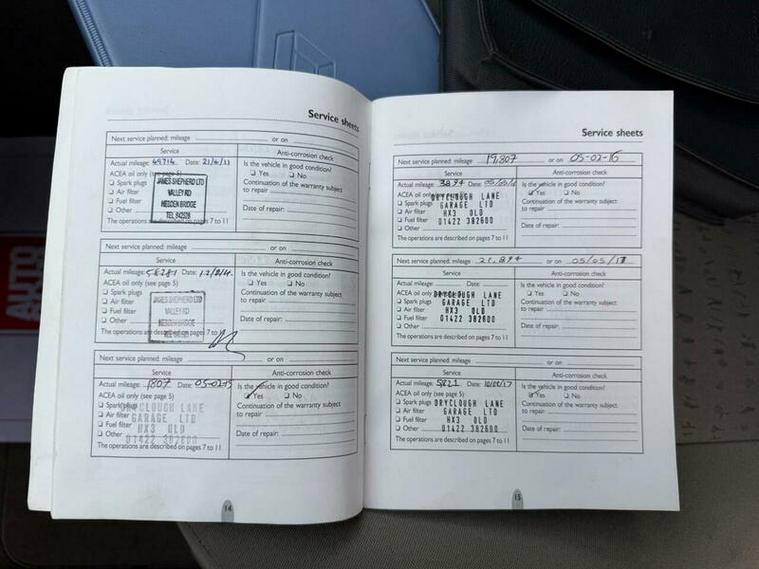 Service sheets
Next service planned: mileage or on
Service Anti-corrosion check
Actual mileage: 49714 Date: 21/6/13 Is the vehicle in good condition?
ACEA oil only (see page 5) ❑ Yes ❑ No
❑ Spark plugs Continuation of the warranty subject
❑ Air filter to repair:
❑ Fuel filter
❑ Other Date of repair:
The operations are described on pages 7 to 11
JAMES SHEPHERD LTD
VALLEY RD
HEBDEN BRIDGE
TEL 842528
Next service planned: mileage or on
Service Anti-corrosion check
Actual mileage: 58281 Date: Is the vehicle in good condition?
ACEA oil only (see page 5) ❑ Yes ❑ No
❑ Spark plugs Continuation of the warranty subject
❑ Air filter to repair:
❑ Fuel filter
❑ Other Date of repair:
The operations are described on pages 7 to 11
JAMES SHEPHERD LTD
VALLEY RD
HEBDEN BRIDGE
Next service planned: mileage or on
Service Anti-corrosion check
Actual mileage: 1807 Date: 05-02-15 Is the vehicle in good condition?
ACEA oil only (see page 5) ❑ Yes ❑ No
❑ Spark plugs Continuation of the warranty subject
❑ Air filter to repair:
❑ Fuel filter
❑ Other Date of repair:
The operations are described on pages 7 to 11
DRYCLOUGH LANE
GARAGE LTD
HX3 0LD
01422 382600
14
Service sheets
Next service planned: mileage 19,807 or on 05-02-16
Service Anti-corrosion check
Actual mileage: 3894 Date: Is the vehicle in good condition?
ACEA oil only ❑ Yes ❑ No
❑ Spark plugs Continuation of the warranty subject
❑ Air filter to repair:
❑ Fuel filter
❑ Other Date of repair:
The operations are described on pages 7 to 11
DRYCLOUGH LANE
GARAGE LTD
HX3 0LD
01422 382600
Next service planned: mileage 21,894 or on
Service Anti-corrosion check
Actual mileage: Date: Is the vehicle in good condition?
ACEA oil only ❑ Yes ❑ No
❑ Spark plugs Continuation of the warranty subject
❑ Air filter to repair:
❑ Fuel filter
❑ Other Date of repair:
The operations are described on pages 7 to 11
DRYCLOUGH LANE
GARAGE LTD
HX3 0LD
01422 382600
Next service planned: mileage or on
Service Anti-corrosion check
Actual mileage: 5821 Date: Is the vehicle in good condition?
ACEA oil only (see page 5) ❑ Yes ❑ No
❑ Spark plugs Continuation of the warranty subject
❑ Air filter to repair:
❑ Fuel filter
❑ Other Date of repair:
The operations are described on pages 7 to 11
DRYCLOUGH LANE
GARAGE LTD
HX3 0LD
01422 382600
15
AUTO